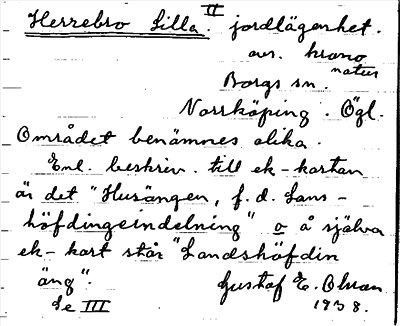 Herrebro Lilla. II jordlägenhet.
av. krono
natur
Borgs sn.
Norrköping. Ögl.
Området benämnes olika.
Enl. beskriv. till ek-kartan
är det "Husängen, f.d. Lans-
höfdingeindelning" o å själva
ek-kart står "Landshöfdin
äng".
Gustaf E. Olsson
Se III
1938.